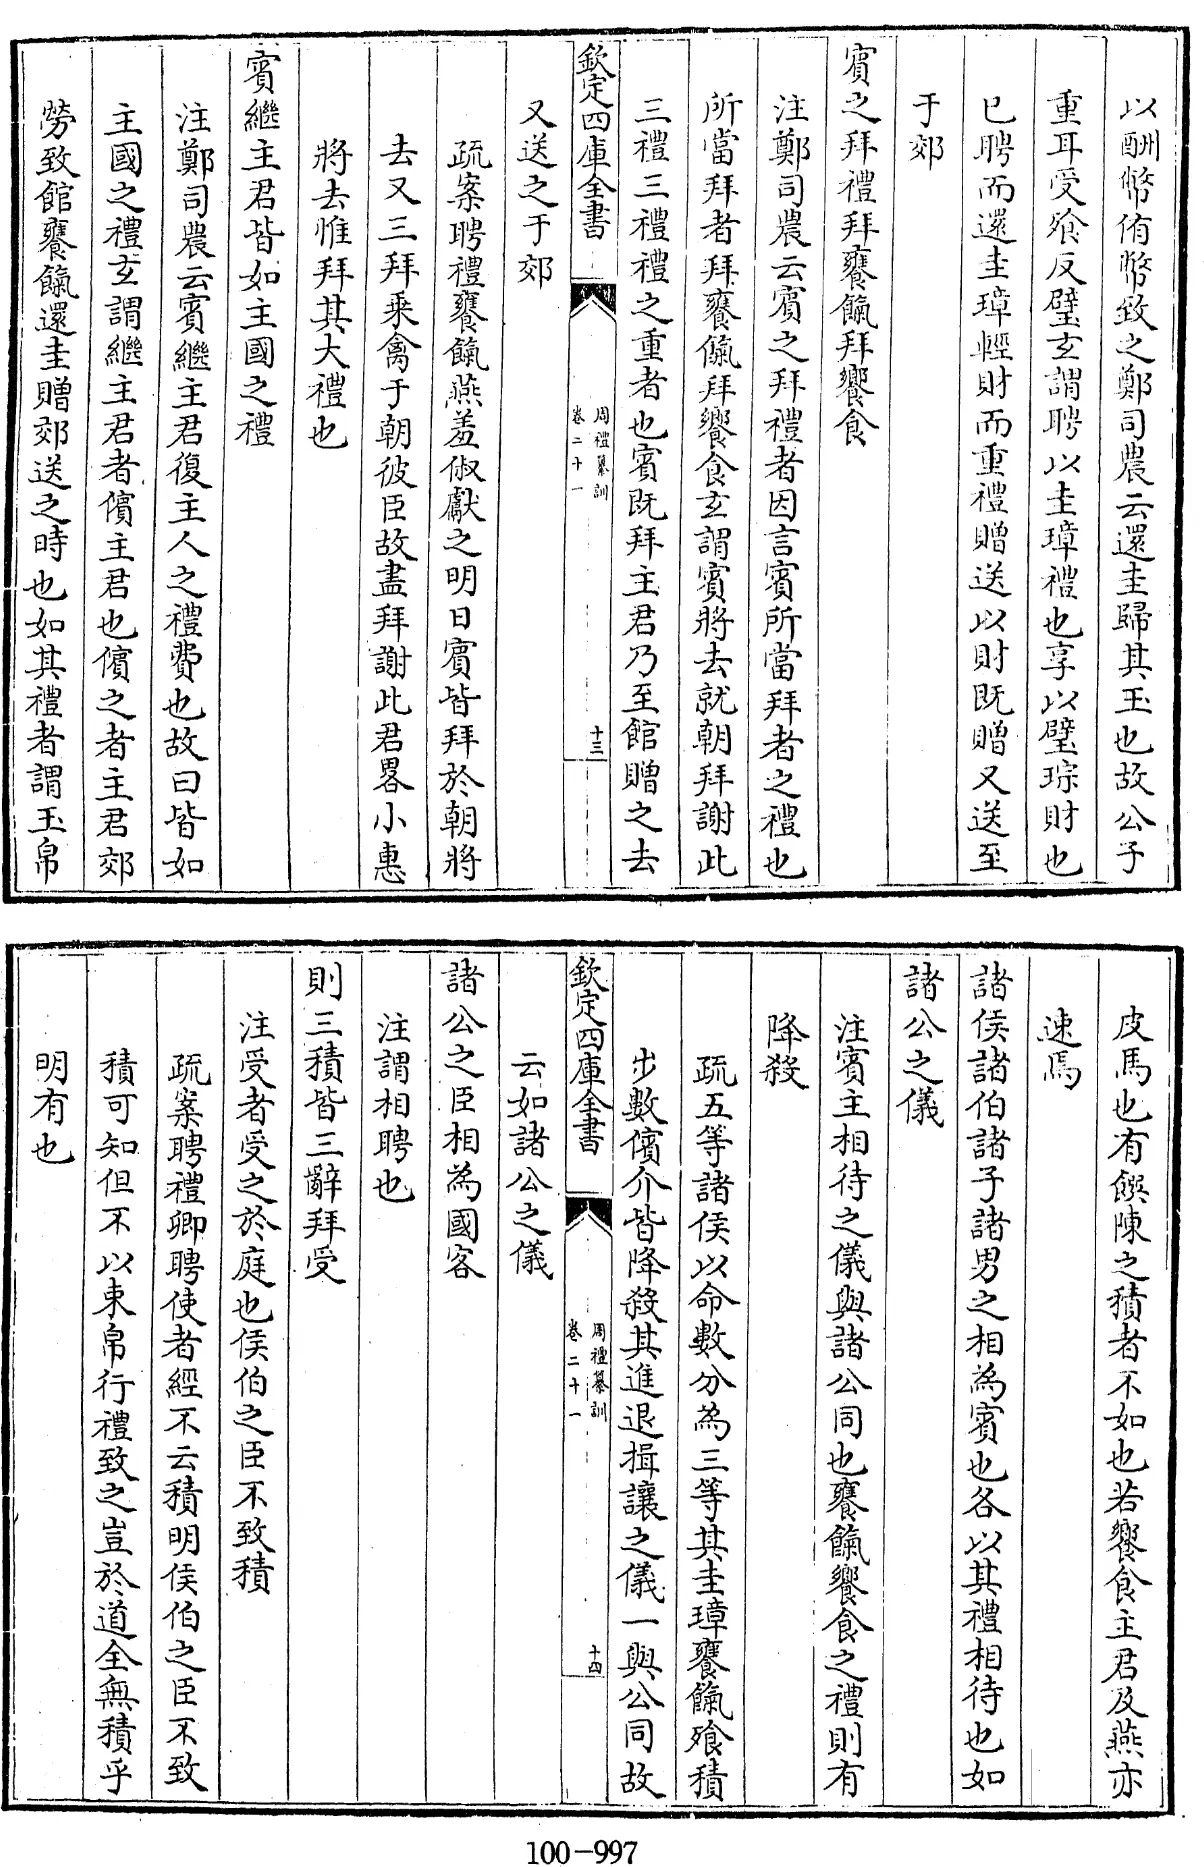 以酬幣侑幣致之鄭司農云還圭歸其玉也故公子
重耳受飱反璧玄謂聘以圭璋禮也享以璧琮財也
已聘而還圭璋輕財而重禮贈送以財既贈又送至
于郊
賓之拜禮拜饔餼拜饗食
注鄭司農云賓之拜禮者因言賓所當拜者之禮也
所當拜者拜饔餼拜饗食玄謂賓將去就朝拜謝此
三禮三禮禮之重者也賓既拜主君乃至館贈之去
欽定四庫全書
周禮纂訓
卷二十一
十三
又送之于郊
疏案聘禮饔餼燕羞俶獻之明日賓皆拜於朝將
去又三拜乘禽于朝彼臣故盡拜謝此君畧小惠
將去惟拜其大禮也
賓繼主君皆如主國之禮
注鄭司農云賓繼主君復主人之禮費也故曰皆如
主國之禮玄謂繼主君者儐主君也儐之者主君郊
勞致館饔餼還圭贈郊送之時也如其禮者謂玉帛
皮馬也有饌陳之積者不如也若饗食主君及燕亦
速焉
諸侯諸伯諸子諸男之相為賓也各以其禮相待也如
諸公之儀
注賓主相待之儀與諸公同也饔餼饗食之禮則有
降殺
疏五等諸侯以命數分為三等其圭璋饔餼飱積
步數儐介皆降殺其進退揖讓之儀一與公同故
欽定四庫全書
周禮纂訓
卷二十一
十四
云如諸公之儀
諸公之臣相為國客
注謂相聘也
則三積皆三辭拜受
注受者受之於庭也侯伯之臣不致積
疏案聘禮卿聘使者經不云積明侯伯之臣不致
積可知但不以束帛行禮致之豈於道全無積乎
明有也
100-997